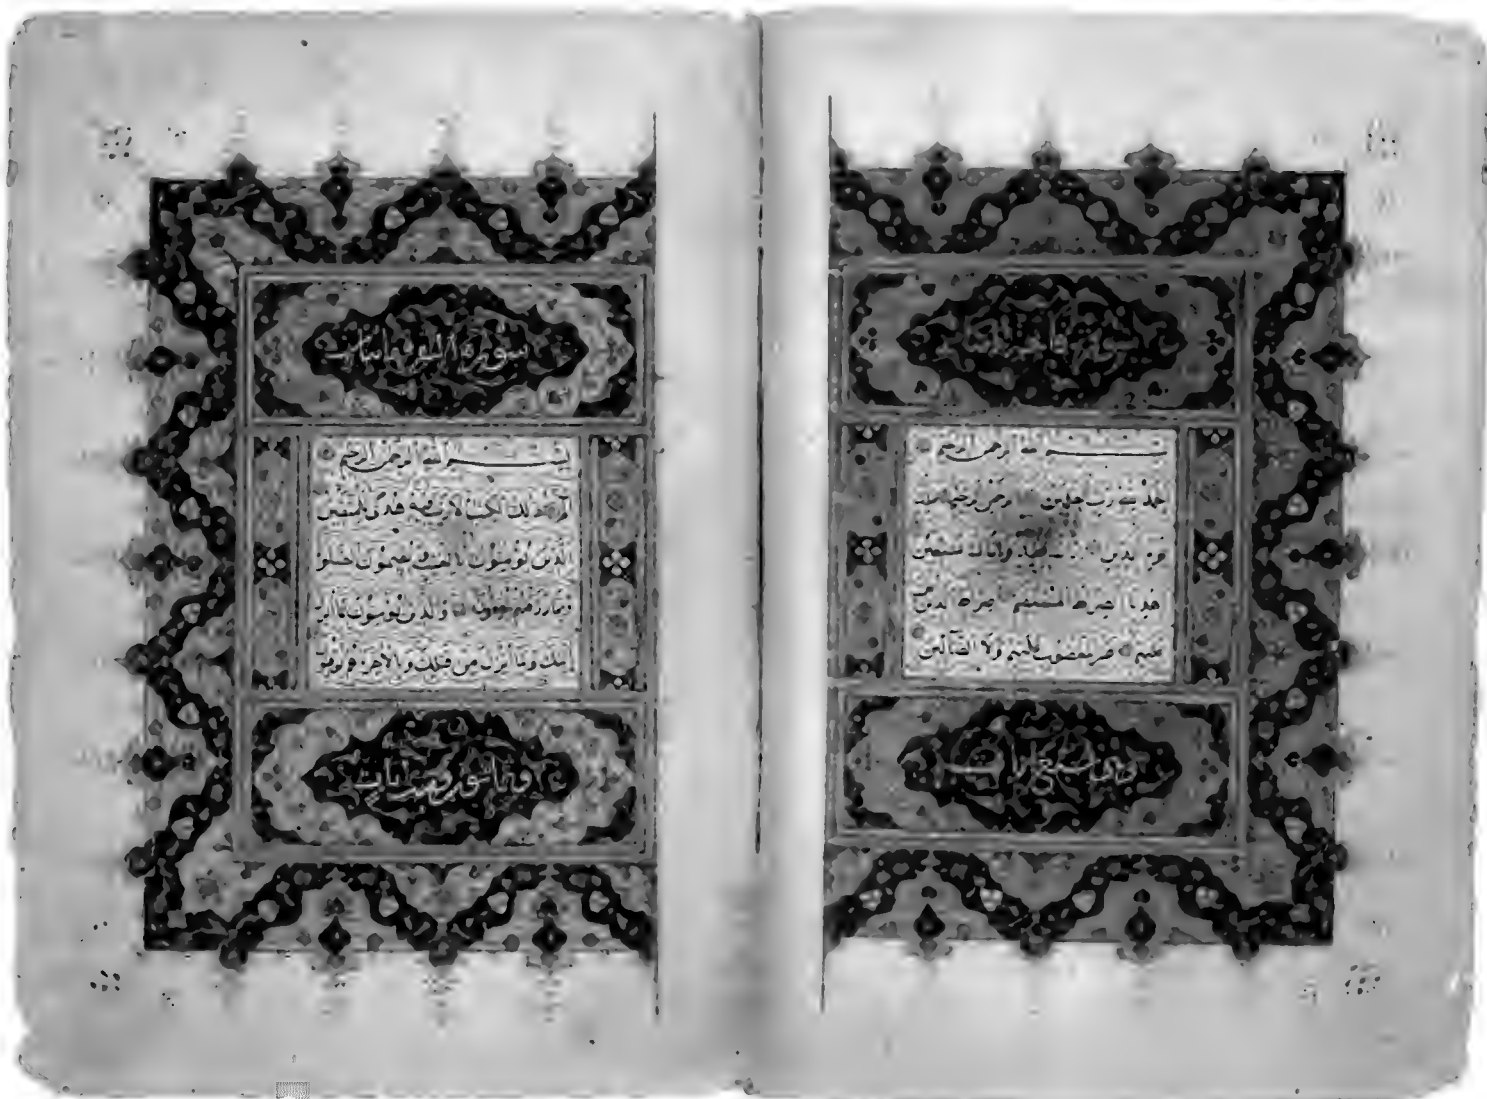 سورة فاتحة الكتاب
بسم الله الرحمن الرحيم
الحمد لله رب العلمين الرحمن الرحيم ملك
يوم الدين اياك نعبد واياك نستعين
اهدنا الصراط المستقيم صراط الذين
عليهم غير المغضوب عليهم ولا الضالين
وهي سبع ايات
سورة البقرة مائتان
بسم الله الرحمن الرحيم
الم ذلك الكتب لا ريب فيه هدى للمتقين
الذين يؤمنون بالغيب ويقيمون الصلو
ومما رزقنهم ينفقون والذين يؤمنون بما انزل
اليك وما انزل من قبلك وبالاخرة هم يوقنو
وثمانون وست ايات